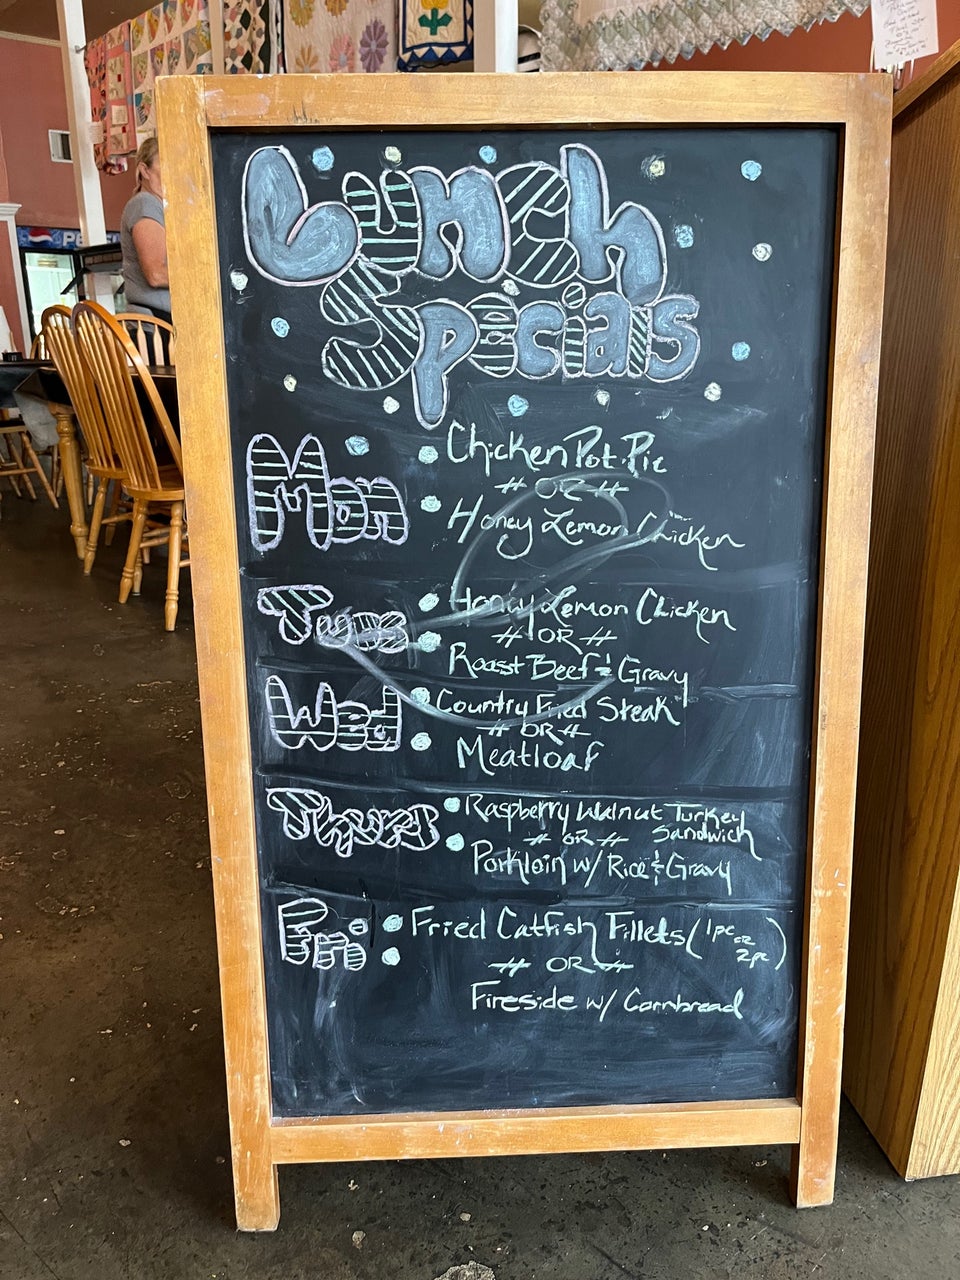 Lunch
Specials
Mon
Chicken Pot Pie
# OR #
Honey Lemon Chicken
Tues
Honey Lemon Chicken
# OR #
Roast Beef & Gravy
Wed
Country Fried Steak
# OR #
Meatloaf
Thurs
Raspberry Walnut Turkey
Sandwich
# OR #
Porkloin w/ Rice & Gravy
Fri
Fried Catfish Fillets (1pc or 2pc)
# OR #
Fireside w/ Cornbread
PEPSI